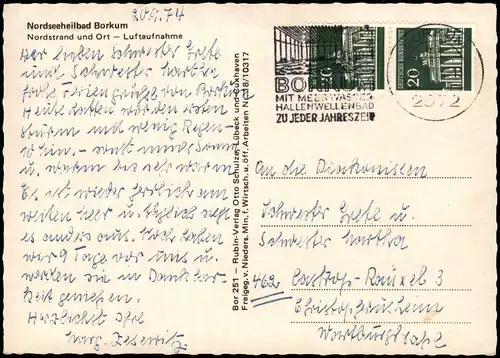 20.9.74
Nordseeheilbad Borkum
Nordstrand und Ort — Luftaufnahme
Ihr lieben Schwester Grete
und Schwester Martha
frohe Feriengrüße von Borkum
Heute hatten wir den ersten
Sturm und wenig Regen
so hin, — sonst immer Sonne
u. warm bis sehr warm
Es ist wieder herrlich am
weiten Meer u. täglich sieht
es anders aus. Noch haben
wir 9 Tage vor uns u.
werden sie in Dankbar-
keit genießen.
Herzlichst Ihre
Marg.
Bor 251 — Rubin-Verlag Otto Schulze, Lübeck und Cuxhaven
Freigeg. v. Nieders. Min. f. Wirtsch. u. öff. Arbeiten Nr. 18/10317
MIT MEERWASSER
HALLENWELLENBAD
ZU JEDER JAHRESZEIT
2972
DEUTSCHE BUNDESPOST
20
20
An die Diakonissen
Schwester Grete u.
Schwester Martha
462 Castrop-Rauxel 3
Christophorusheim
Wartburgstraße